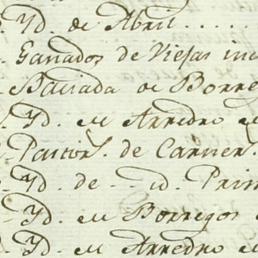 Yd. de Abril . . . .
Ganados de Viejas
Baciada de Borre
Yd. en Arredro
Pastor^s. de Carner^s.
Yd. de - - id. Prim
Yd. en Borregos
Yd. en Arredro